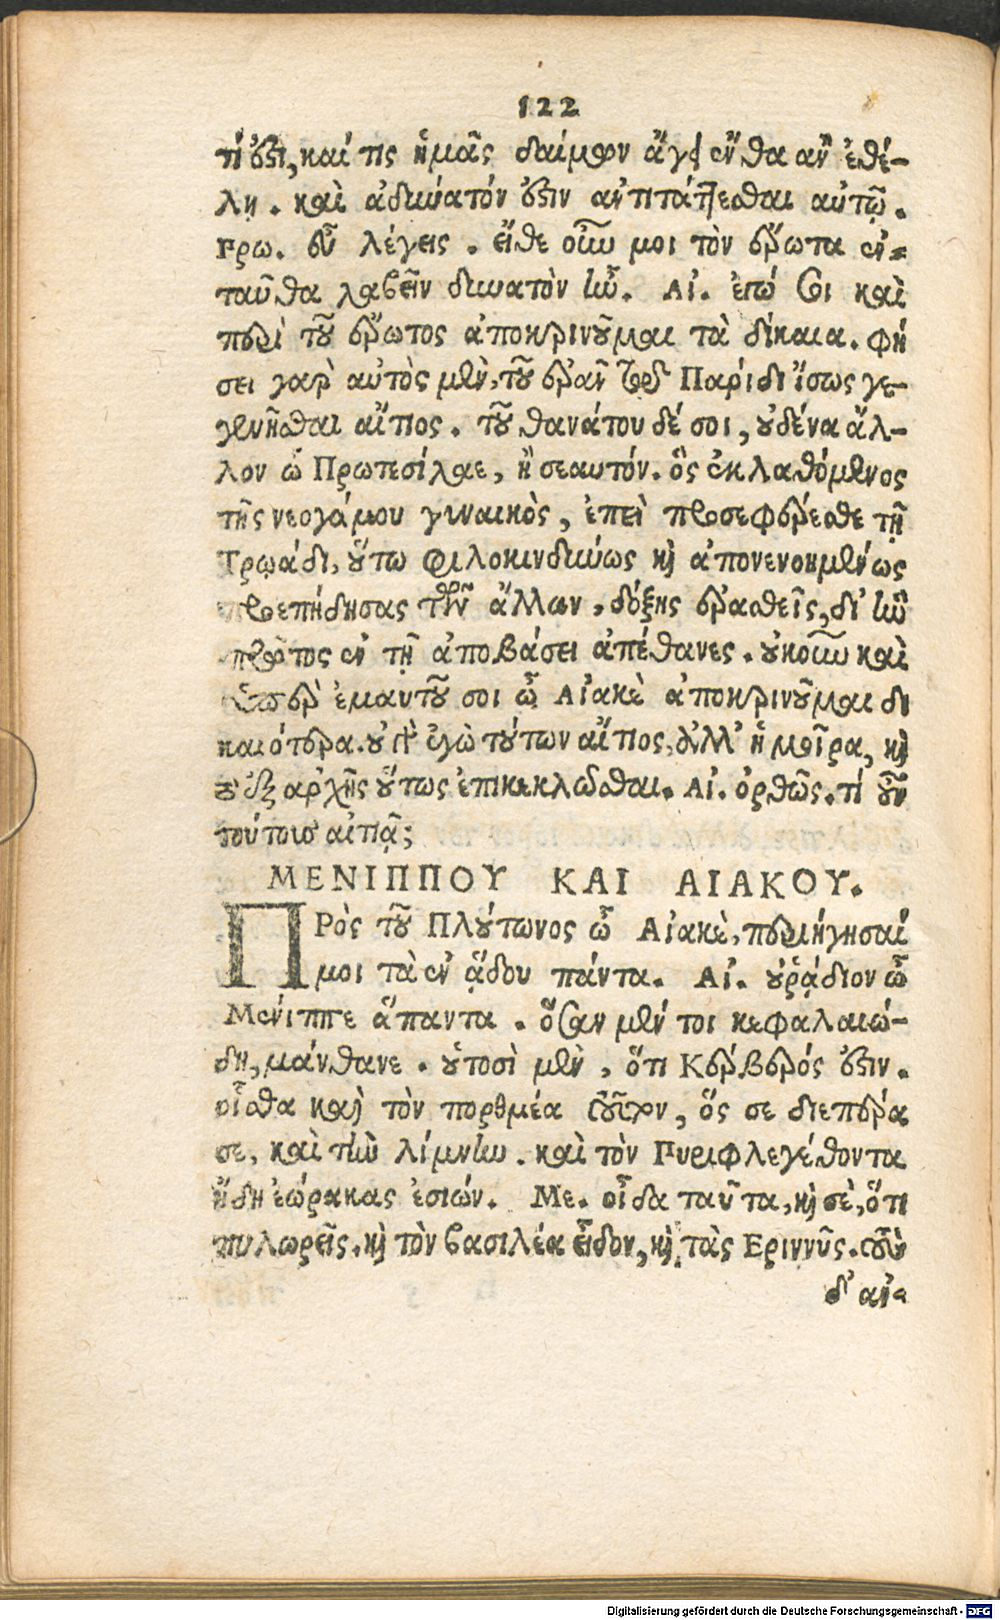 122
τί ἐστι, καί τις ἡμᾶς δαίμων ἄγει ἔνθα ἂν ἐθέ-
λῃ. καὶ ἀδύνατόν ἐστιν ἀντιτάττεσθαι αὐτῷ.
Πρω. εὖ λέγεις. εἴθε οὖν μοι τὸν ἔρωτα ἐν-
ταῦθα λαβεῖν δυνατὸν ἦν. Αἰ. ἐγώ σοι καὶ
περὶ τοῦ ἔρωτος ἀποκρινοῦμαι τὰ δίκαια. φή
σει γὰρ αὐτὸς μὲν, τοῦ ἐρᾶν τῷ Παρίδι ἴσως γε-
γενῆσθαι αἴτιος. τοῦ θανάτου δέ σοι, οὐδένα ἄλ-
λον ὦ Πρωτεσίλαε, ἢ σεαυτόν. ὃς ἐκλαθόμενος
τῆς νεογάμου γυναικὸς, ἐπεὶ προσεφέρεσθε τῇ
Τρῳάδι, οὕτω φιλοκινδύνως καὶ ἀπονενοημένως
προεπήδησας τῶν ἄλλων, δόξης ἐρασθεὶς, δι' ἣν
πρῶτος ἐν τῇ ἀποβάσει ἀπέθανες. οὐκοῦν καὶ
ὑπὲρ ἐμαυτοῦ σοι ὦ Αἰακὲ ἀποκρινοῦμαι δι
καιότερα. οὐ γὰρ ἐγὼ τούτων αἴτιος, ἀλλ' ἡ μοῖρα, καὶ
τὸ ἐξ ἀρχῆς οὕτως ἐπικεκλῶσθαι. Αἰ. ὀρθῶς. τί οὖν
τούτοις αἰτιᾷ;
ΜΕΝΙΠΠΟΥ ΚΑΙ ΑΙΑΚΟΥ.
ΠΡὸς τοῦ Πλούτωνος ὦ Αἰακὲ, περιήγησαί
μοι τὰ ἐν ᾅδου πάντα. Αἰ. οὐ ῥᾴδιον ὦ
Μένιππε ἅπαντα. ὅσα μέν τοι κεφαλαιώ-
δη, μάνθανε. οὑτοσὶ μὲν, ὅτι Κέρβερός ἐστιν.
οἶσθα καὶ τὸν πορθμέα τοῦτον, ὅς σε διεπέρα
σε, καὶ τὴν λίμνην. καὶ τὸν Πυριφλεγέθοντα
ἤδη ἑώρακας ἐσιών. Με. οἶδα ταῦτα, καὶ σὲ, ὅτι
πυλωρεῖς. καὶ τὸν βασιλέα εἶδον, καὶ τὰς Ἐριννῦς. τοὺς
δ' αν-
Digitalisierung gefördert durch die Deutsche Forschungsgemeinschaft - DFG